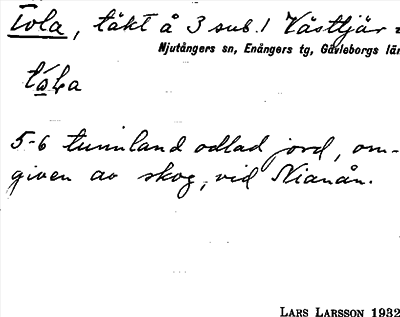 Tola, täkt å 3 sub. 1 Västtjär =
Njutångers sn, Enångers tg, Gävleborgs län
5-6 tunnland odlad jord, om-
given av skog, vid Nianån.
LARS LARSSON 1932